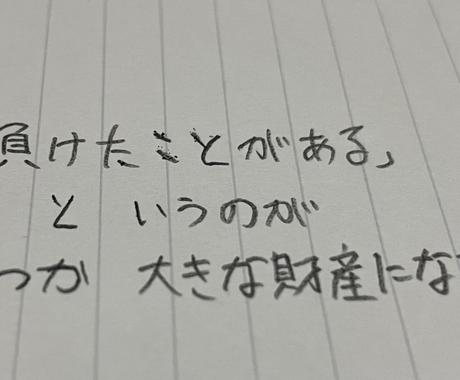 負けたことがある」
というのが
つか 大きな財産にな